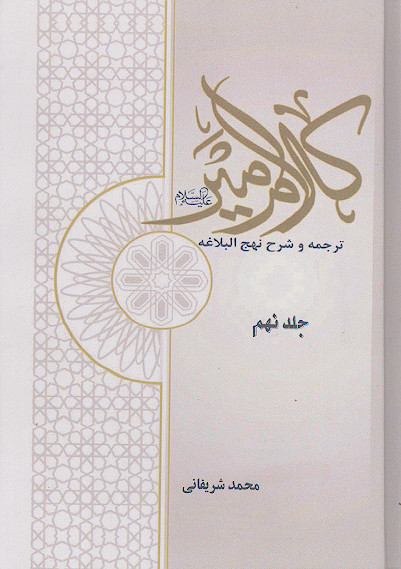 کلام امیر
علیه‌السلام
ترجمه و شرح نهج البلاغه
جلد نهم
محمد شریفانی